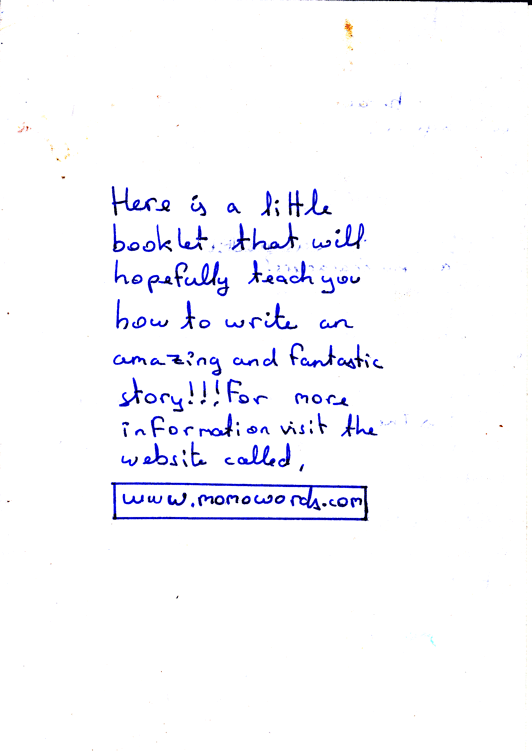 Here is a little
booklet. that will
hopefully teach you
how to write an
amazing and fantastic
story!!! For more
information visit the
website called,
www.momowords.com